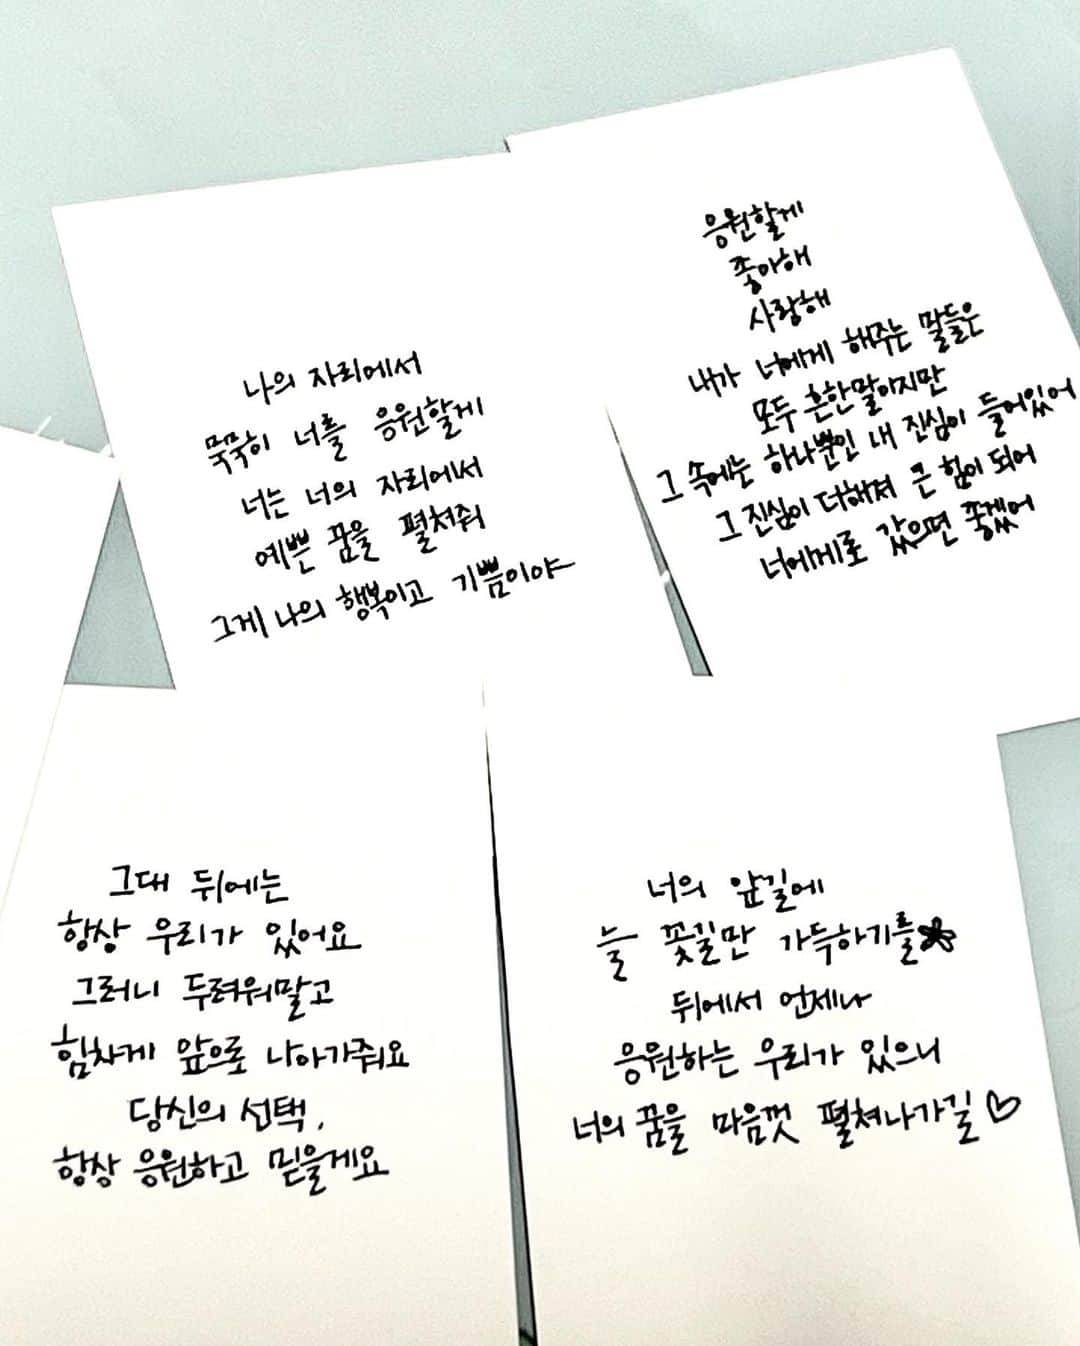 나의 자리에서
묵묵히 너를 응원할게
너는 너의 자리에서
예쁜 꿈을 펼쳐줘
그게 나의 행복이고 기쁨이야
응원할게
좋아해
사랑해
내가 너에게 해주는 말들은
모두 흔한말이지만
그 속에는 하나뿐인 내 진심이 들어있어
그 진심이 더해져 큰 힘이 되어
너에게로 갔으면 좋겠어
그대 뒤에는
항상 우리가 있어요
그러니 두려워말고
힘차게 앞으로 나아가줘요
당신의 선택,
항상 응원하고 믿을게요
너의 앞길에
늘 꽃길만 가득하기를
뒤에서 언제나
응원하는 우리가 있으니
너의 꿈을 마음껏 펼쳐나가길♡